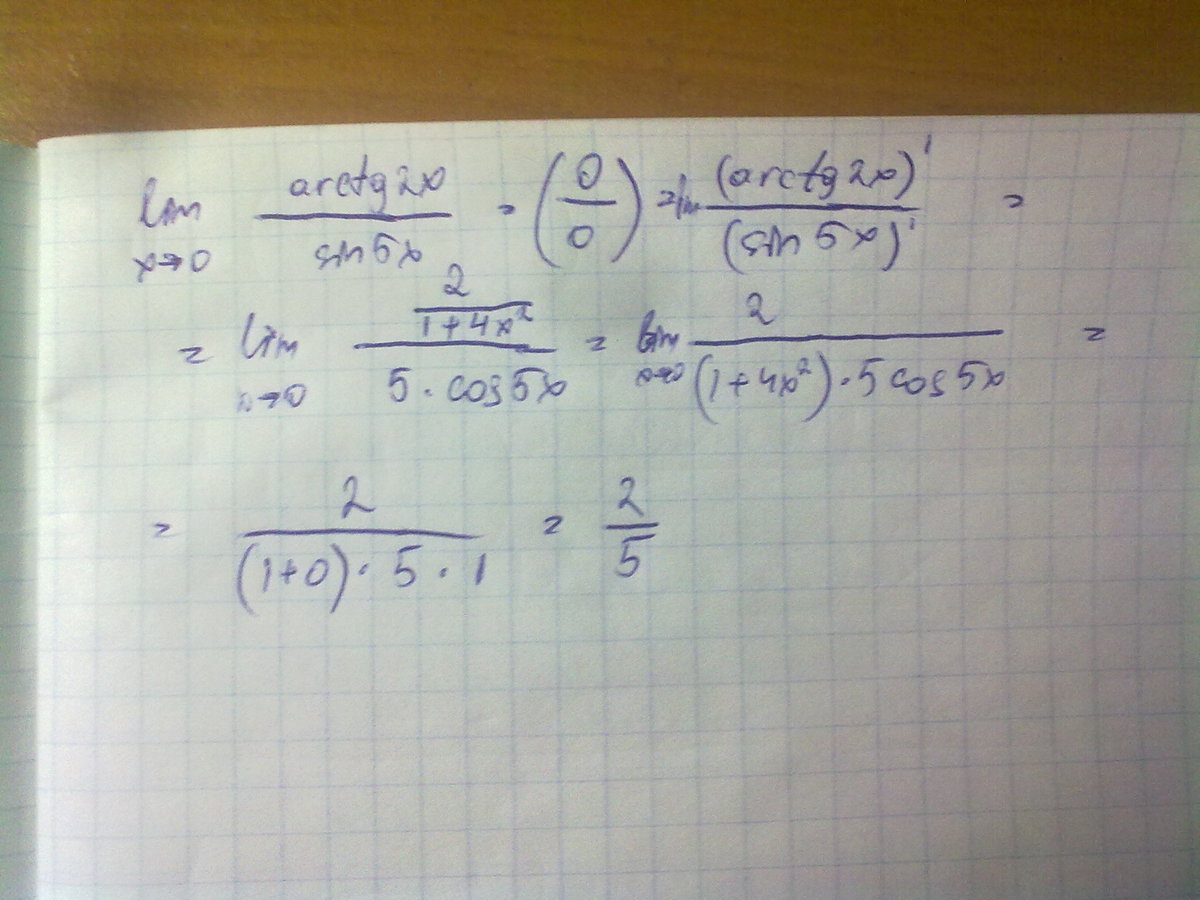 lim x→0 arctg2x / sin5x = (0/0) = lim (arctg2x)' / (sin5x)' =
= lim x→0 (2/(1+4x²)) / (5·cos5x) = lim x→0 2 / ((1+4x²)·5cos5x) =
= 2 / ((1+0)·5·1) = 2/5